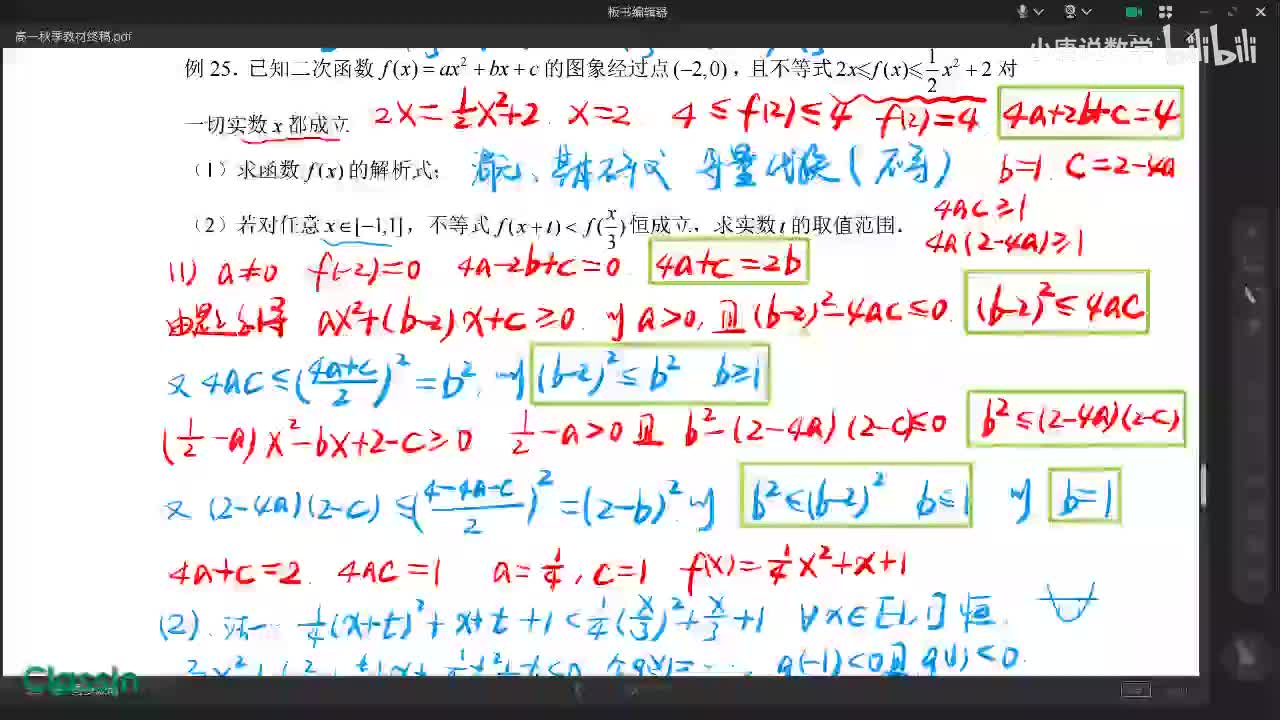 板书编辑器
高一秋季教材终稿.pdf
小唐说数学 bilibili
例 25．已知二次函数 f(x)=ax²+bx+c 的图象经过点(−2,0)，且不等式 2x≤f(x)≤1/2x²+2 对
一切实数 x 都成立
2x=1/2x²+2 x=2 4≤f(2)≤4 f(2)=4 4a+2b+c=4
（1）求函数 f(x) 的解析式；
消元、基本不等式 等量代换（不等）
b=1 c=2-4a
4ac≥1
（2）若对任意 x∈[−1,1]，不等式 f(x+t)<f(x/3)恒成立，求实数 t 的取值范围．
4a(2-4a)≥1
(1) a≠0 f(-2)=0 4a-2b+c=0 4a+c=2b
由题意得 ax²+(b-2)x+c≥0 则 a>0，且 (b-2)²-4ac≤0 (b-2)²≤4ac
又 4ac≤((4a+c)/2)²=b²，则 (b-2)²≤b² b≥1
(1/2-a)x²-bx+2-c≥0 1/2-a>0 且 b²-(2-4a)(2-c)≤0 b²≤(2-4a)(2-c)
又 (2-4a)(2-c)≤((4-4a-c)/2)²=(2-b)² 则 b²≤(b-2)² b≤1 则 b=1
4a+c=2 4ac=1 a=1/4，c=1 f(x)=1/4x²+x+1
(2)．法一 1/4(x+t)²+x+t+1<1/4(x/3)²+x/3+1 ∀x∈[-1,1] 恒
g(-1)<0且g(1)<0
ClassIn